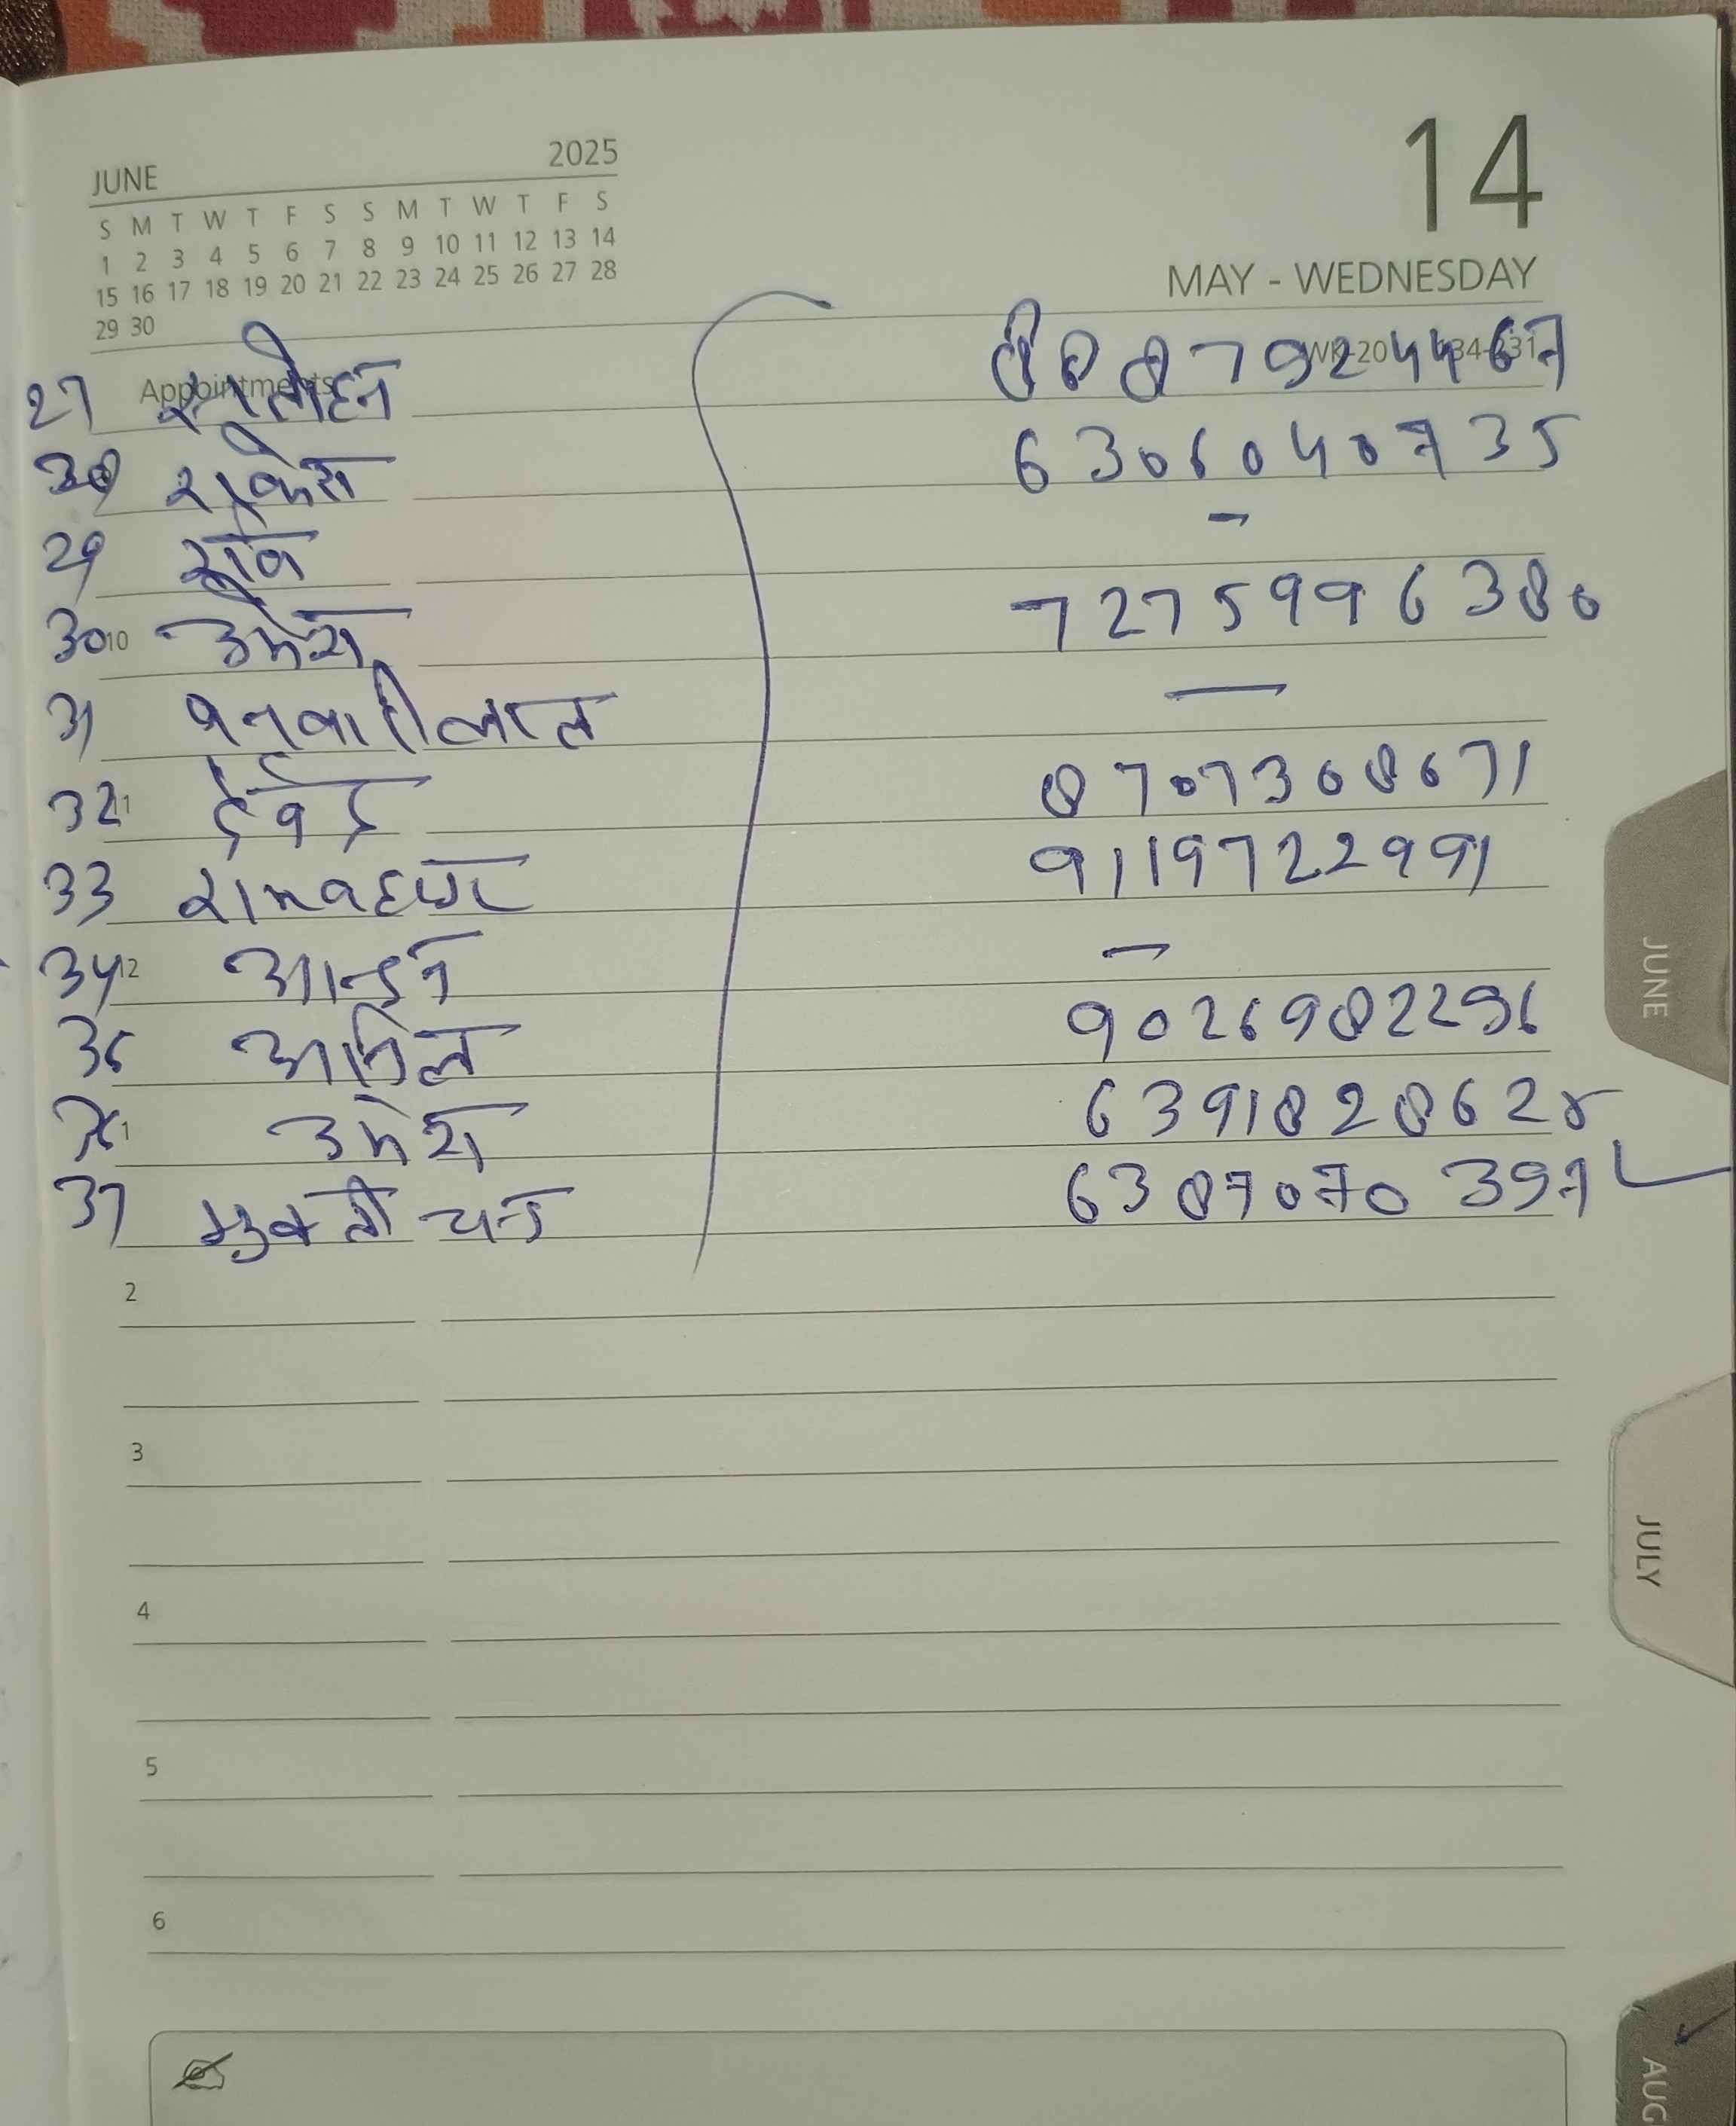 JUNE 2025
S M T W T F S S M T W T F S
1 2 3 4 5 6 7 8 9 10 11 12 13 14
15 16 17 18 19 20 21 22 23 24 25 26 27 28
29 30
14
MAY - WEDNESDAY
Appointments
27 8887924467
28 राकेश 6306040735
29 रवि –
30 उमेश 7275996380
31 बनवारीलाल —
32 देवेंद्र 8707308671
33 रामबहादुर 9119722991
34 –
35 अनिल 9026982296
36 उमेश 6391828628
37 6387070397
10
11
12
1
2
3
4
5
6
JUNE
JULY
AUG